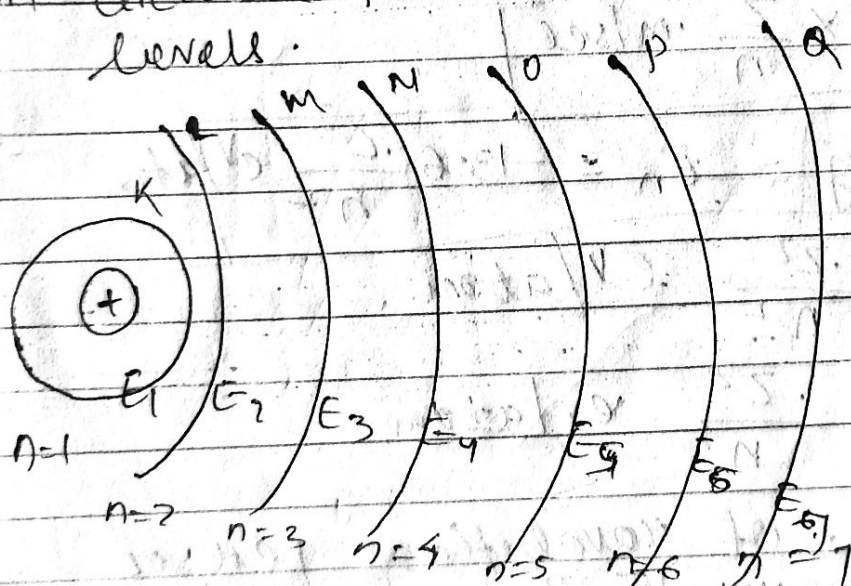 levels.
K L M N O P Q
+
E1 E2 E3 E4 E5 E6 E7
n=1 n=2 n=3 n=4 n=5 n=6 n=7